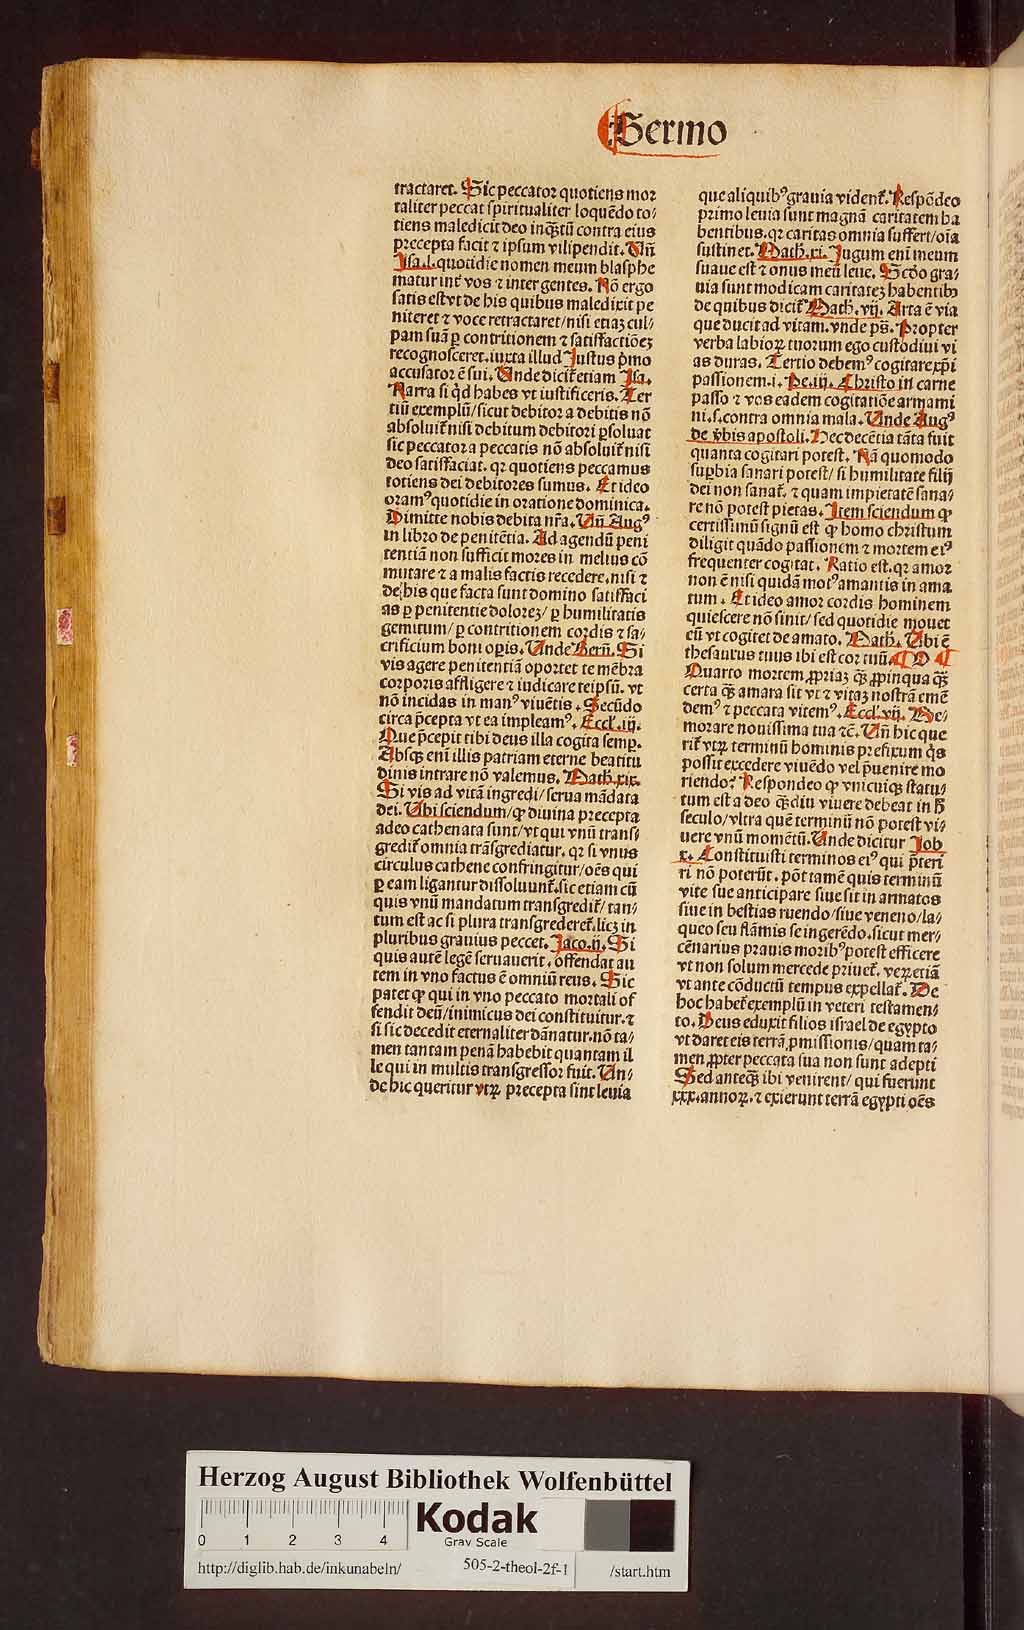 Sermo
tractaret. Sic peccator quotiens mor
taliter peccat spiritualiter loquēdo to/
tiens maledicit deo inqȝtū contra eius
precepta facit ⁊ ipsum vilipendit. Vn̄
Isa.l. quotidie nomen meum blasphe
matur int̄ vos ⁊ inter gentes. Nō ergo
satis est vt de his quibus maledixit pe
niteret ⁊ voce retractaret/ nisi etiaȝ cul/
pam suā ꝑ contritionem ⁊ satisfactiōeȝ
recognosceret. iuxta illud Justus p̄mo
accusator ē sui. Unde dicit̄ etiam Isa.
Narra si q̄d habes vt iustificeris. Ter
tiū exemplū/ sicut debitor a debitis nō
absoluit̄ nisi debitum debitori ꝑsoluat
sic peccator a peccatis nō absoluit̄ nisi
deo satisfaciat. qꝛ quotiens peccamus
totiens dei debitores sumus. Et ideo
oramꝰ quotidie in oratione dominica.
Dimitte nobis debita nr̄a. Vn̄ Augꝰ
in libro de penitētia. Ad agendū peni
tentiā non sufficit mores in melius cō
mutare ⁊ a malis factis recedere. nisi ⁊
de his que facta sunt domino satisfaci
as ꝑ penitentie doloreȝ/ ꝑ humilitatis
gemitum/ ꝑ contritionem cordis ⁊ sa/
crificium boni oꝑis. Unde Bern̄. Si
vis agere penitentiā oportet te mēbra
corporis affligere ⁊ iudicare teipsū. vt
nō incidas in manꝰ viuētis. Secūdo
circa p̄cepta vt ea impleamꝰ. Eccl̄. iij.
Que p̄cepit tibi deus illa cogita semꝑ.
Absqȝ eni illis patriam eterne beatitu
dinis intrare nō valemus. Math.xix.
Si vis ad vitā ingredi/ serua mādata
dei. Ubi sciendum/ ꝙ diuina precepta
adeo cathenata sunt/ vt qui vnū trans/
gredit̄ omnia trāsgrediatur. qꝛ si vnus
circulus cathene confringitur/ oēs qui
ꝑ eam ligantur dissoluunt̄. sic etiam cū
quis vnū mandatum transgredit̄/ tan/
tum est ac si plura transgrederet̄. licȝ in
pluribus grauius peccet. Jaco.ij. Si
quis autē legē seruauerit. offendat au
tem in vno factus ē omniū reus. Sic
patet ꝙ qui in vno peccato mortali of
fendit deū/ inimicus dei constituitur. ⁊
si sic decedit eternaliter dānatur. nō ta/
men tantam penā habebit quantam il
le qui in multis transgressor fuit. Un/
de hic queritur vtꝝ precepta sint leuia
que aliquibꝰ grauia vident̄. Respōdeo
primo leuia sunt magnā caritatem ha
bentibus. qꝛ caritas omnia suffert/ oīa
sustinet. Math.xi. Jugum enī meum
suaue est ⁊ onus meū leue. Scdo gra/
uia sunt modicam caritateȝ habentibꝰ
de quibus dicit̄ Math.vij. Arta ē via
que ducit ad vitam. vnde ps̄. Propter
verba labioꝝ tuorum ego custodiui vi
as duras. Tertio debemꝰ cogitare xp̄i
passionem. i. Pe.iij. Christo in carne
passo ⁊ vos eadem cogitatiōe armami
ni. s. contra omnia mala. Unde Augꝰ
de v̄bis apostoli. Hec decētia tāta fuit
quanta cogitari potest. Nā quomodo
suꝑbia sanari potest/ si humilitate filij
dei non sanat̄. ⁊ quam impietatē sana/
re nō potest pietas. Item sciendum ꝙ
certissimū signū est ꝙ homo christum
diligit quādo passionem ⁊ mortem eiꝰ
frequenter cogitat. Ratio est. qꝛ amor
non ē nisi quidā motꝰ amantis in ama
tum. Et ideo amor cordis hominem
quiescere nō sinit/ sed quotidie mouet
eū vt cogitet de amato. Math. Ubi ē
thesaurus tuus ibi est cor tuū. D
Quarto mortem ꝓpriaȝ qȝ ꝓpinqua qȝ
certa qȝ amara sit vt ⁊ vitaȝ nostrā emē
demꝰ ⁊ peccata vitemꝰ. Eccl̄.vij. Me/
morare nouissima tua ⁊c. Vn̄ hic que
rit̄ vtꝝ terminū hominis prefixum q̄s
possit excedere viuēdo vel p̄uenire mo
riendo? Respondeo ꝙ vnicuiqȝ statu/
tum est a deo qȝdiu viuere debeat in h̄
seculo/ vltra quē terminū nō potest vi/
uere vnū momētū. Unde dicitur Job
x. Constituisti terminos eiꝰ qui p̄teri
ri nō poterūt. pōt tamē quis terminū
vite sue anticipare siue sit in armatos
siue in bestias ruendo/ siue veneno/ la/
queo seu flāmis se ingerēdo. sicut mer/
cēnarius prauis moribꝰ potest efficere
vt non solum mercede priuet̄. veꝝetiā
vt ante cōductū tempus expellat̄. De
hoc habet̄ exemplū in veteri testamen/
to. Deus eduxit filios israel de egypto
vt daret eis terrā ꝓmissionis/ quam ta/
men ꝓpter peccata sua non sunt adepti
Sed anteqȝ ibi venirent/ qui fuerunt
xxx. annoꝝ. ⁊ exierunt terrā egypti oēs
Herzog August Bibliothek Wolfenbüttel
0 1 2 3 4
Kodak
Gray Scale
http://diglib.hab.de/inkunabeln/ 505-2-theol-2f-1 /start.htm